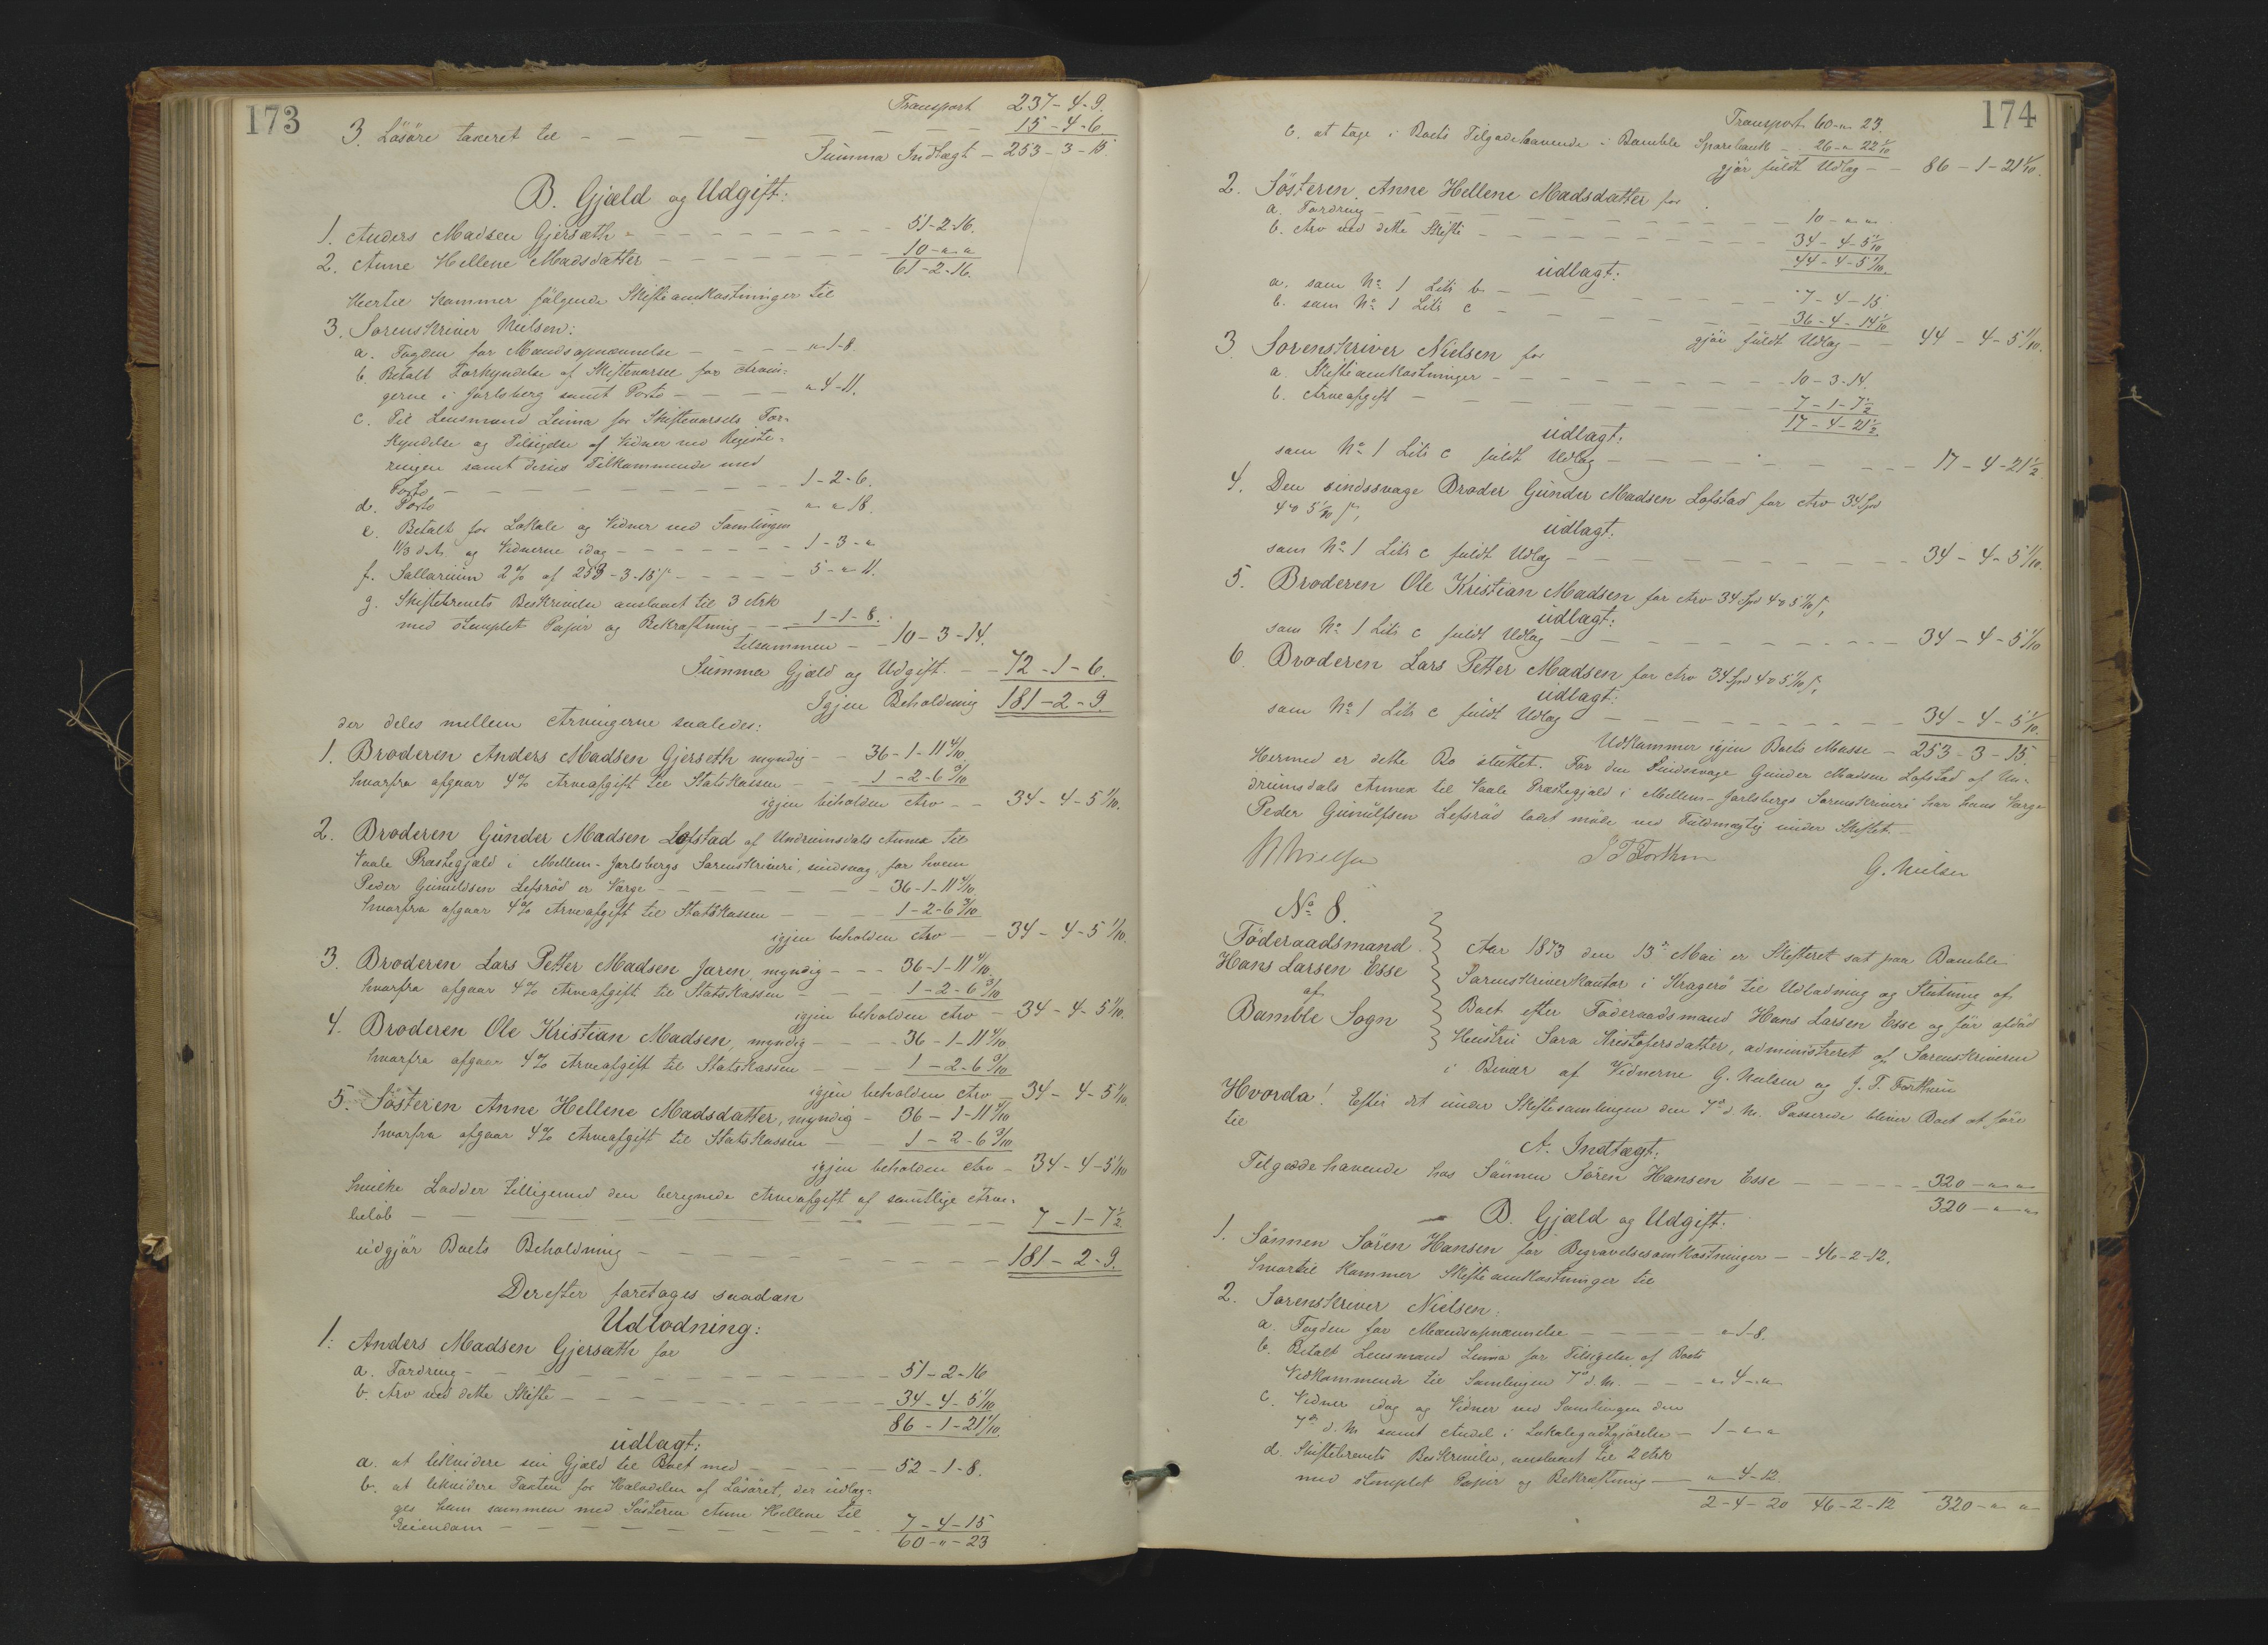 173
Transport 237-4-9.
3. Lösöre taxeret til - - - - - - 15-4-6
Summa Indtægt - 253-3-15.
B. Gjæld og Udgift:
1. Anders Madsen Gjersæth - - - - - - 51-2-16.
2. Anne Hellene Madsdatter - - - - - - 10-"-"
61-2-16.
Hertil kommer følgende Skifteomkostninger til
3. Sorenskriver Nielsen:
a. Fogden for Mændsopnævnelse - - - - "-1-8
b. Betalt Forkyndelse af Skiftevarsel for Arvin-
gerne i Jarlsberg samt Porto - - - - "-4-11.
c. Til Lensmand Leima for Skiftevarsels For-
kyndelse og Tilsigelse af Vidner ved Registe-
ringen samt denes Tilkommende med
Porto - - - - - - - - 1-2-6.
d. Porto - - - "-"-18.
e. Betalt for Lokale og Vidner ved Samlingen
11/3 d. A. og Vidnerne idag - - - - - - 1-3-"
f. Sallarium 2% af 253-3-15 ß - - - - 5-"-11.
g. Skiftebrevets Beskrivelse anslaaet til 3 Ark
med stemplet Papir og Bekræftning - - 1-1-8.
tilsammen - - 10-3-14.
Summa Gjæld og Udgift. - - 72-1-6.
Igjen Beholdning 181-2-9.
der deles mellem Arvingerne saaledes:
1. Broderen Anders Madsen Gjerseth myndig - - 36-1-11 4/10.
hvorfra afgaar 4% Arveafgift til Statskassen - - 1-2-6 3/10
igjen beholden Arv - - 34-4-5 1/10.
2. Broderen Günder Madsen Lofstad af Undrumsdals Annex til
Vaale Præstegjæld i Mellem-Jarlsbergs Sorenskriveri, sindsvag, for hvem
Peder Gunuldsen Lefsröd er Værge - - - - - - 36-1-11 4/10.
hvorfra afgaar 4% Arveafgift til Statskassen - - - 1-2-6 3/10
igjen beholden Arv - - 34-4-5 1/10.
3. Broderen Lars Petter Madsen Jaren, myndig - - - 36-1-11 4/10.
hvorfra afgaar 4% Arveafgift til Statskassen - - - 1-2-6 3/10
igjen beholden Arv - 34-4-5 1/10.
4. Broderen Ole Kristian Madsen, myndig - - - - 36-1-11 4/10
hvorfra afgaar 4% Arveafgift til Statskassen - - - 1-2-6 3/10
igjen beholden Arv - 34-4-5 1/10.
5. Søsteren Anne Hellene Madsdatter, myndig - 36-1-11 4/10
hvorfra afgaar 4% Arveafgift til Statskassen - - 1-2-6 3/10
igjen beholden Arv - 34-4-5 1/10
hvilke Lodder tilligemed den beregnede Arveafgift af samtlige Arve-
beløb - - - - - - - - - - 7-1-7 1/2.
udgjör Boets Beholdning - - - - - - 181-2-9.
Derefter foretages saadan
Udlodning:
1. Anders Madsen Gjersæth for
a. Fordring - - - - - - - - 51-2-16
b. Arv ved dette Skifte - - - - - - 34-4-5 1/10
86-1-21 1/10.
üdlagt:
a. at likvidere sin Gjæld til Boet med - - - - - 52-1-8.
b. at likvidere Taxten for Halvdelen af Lösöret, der udlæg-
ges ham sammen med Søsteren Anne Hellene til
Eiendom - - - - - - - - - 7-4-15
60-"-23
174
Transport 60-"-23.
c. at tage i Boets Tilgodehavende i Bamble Sparebank - 26-"-22 1/10
gjör fuldt Udlæg - - 86-1-21 1/10.
2. Søsteren Anne Hellene Madsdatter for
a. Fordring - - - - - - - - 10-"-"
b. Arv ved dette Skifte - - - - - - - 34-4-5 1/10
44-4-5 1/10.
üdlagt:
a. som No 1 Litr b - - - - - - - 7-4-15
b. som No 1 Litr c - - - - - - - 36-4-14 1/10
gjör fuldt Udlæg - - 44-4-5 1/10.
3. Sorenskriver Nielsen for
a. Skifteomkostninger - - - - - - - - 10-3-14.
b. Arveafgift - - - - - - - - 7-1-7 1/2
17-4-21 1/2.
üdlagt:
som No 1 Litr c fuldt Udlæg - - - - - - - 17-4-21 1/2
4. Den sindssvage Broder Günder Madsen Lofstad for Arv 34 Spd
4 o 5 1/10 ß,
üdlagt:
som No 1 Litr c fuldt Udlæg - - - - - - - - 34-4-5 1/10.
5. Broderen Ole Kristian Madsen for Arv 34 Spd 4 o 5 1/10 ß,
üdlagt:
som No 1 Litr c fuldt Udlæg - - - - - - - - 34-4-5 1/10
6. Broderen Lars Petter Madsen for Arv 34 Spd 4 o 5 1/10 ß,
üdlagt:
som No 1 Litr c fuldt Udlæg - - - - - - - - 34-4-5 1/10.
Udkommer igjen Boets Masse - 253-3-15.
Hermed er dette Bo sluttet. For den Sindssvage Günder Madsen Lofstad af Un-
drumsdals Annex til Vaale Præstegjæld i Mellem-Jarlsbergs Sorenskriveri har hans Værge
Peder Gunulfsen Lefsröd ladet møde ved Fuldmægtig under Skiftet. -
Nielsen J T Forthun G. Nielsen
No 8.
Föderaadsmand
Hans Larsen Esse
af
Bamble Sogn
Aar 1873 den 13de Mai er Skifteret sat paa Bamble
Sorenskriverkontor i Kragerö til Udlodning og Slutning af
Boet efter Föderaadsmand Hans Larsen Esse og för afdöd
Hustru Sara Kristofersdatter, administreret af Sorenskriveren
i Bivær af Vidnerne G. Nielsen og J. T. Forthun
Hvorda! Efter det under Skiftesamlingen den 7de d. M. Passerede bliver Boet at före
til
A. Indtægt:
Tilgodehavende hos Sønnen Søren Hansen Esse - - - - - 320-"-"
320-"-"
B. Gjæld og Udgift:
1. Sønnen Søren Hansen for Begravelsesomkostninger - - 46-2-12.
hvortil kommer Skifteomkostninger til
2. Sorenskriver Nielsen:
a. Fogden for Mændsopnævnelse - - - - - "-1-8.
b. Betalt Lensmand Leima for Tilsigelse af Boets
Vedkommende til Samlingen 7de d. M. - - - "-4-"
c. Vidner idag og Vidner ved Samlingen den
7de d. M. samt Andel i Lokalegodtgjörelse - 1-"-"
d. Skiftebrevets Beskrivelse, anslaaet til 2 Ark
med stemplet Papir og Bekræftning - "-4-12.
2-4-20 46-2-12 320-"-"